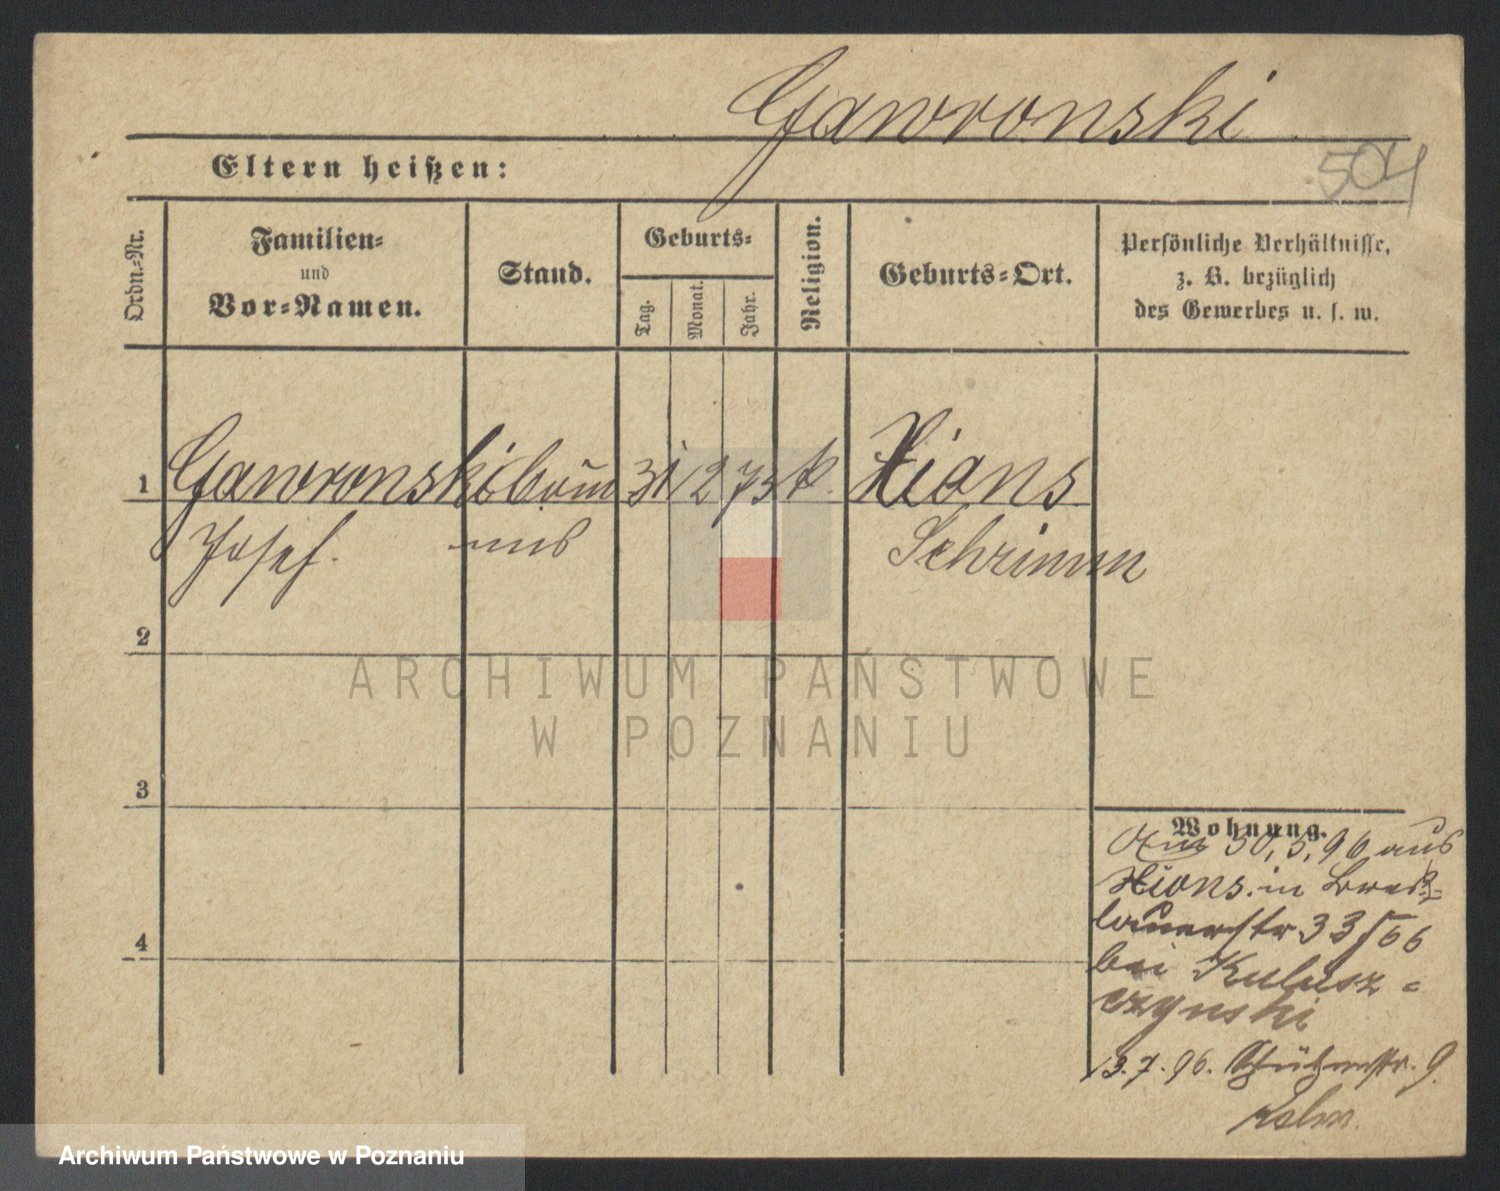 Gawronski
Eltern heißen:
504
Ordn.-Nr.
Familien-
und
Vor-Namen.
Stand.
Geburts-
Tag.
Monat.
Jahr.
Religion.
Geburts-Ort.
Persönliche Verhältnisse,
z. B. bezüglich
des Gewerbes u. s. w.
1 Gawronski 31 2 73 k. Xions
Josef. Schrimm
2
ARCHIWUM PAŃSTWOWE
W POZNANIU
3
Wohnung.
30,5,96 aus
Xions. in Bres-
lauerstr 33/66
bei Kulusz-
czynski
13.7.96. Schützenstr. 9.
4
Archiwum Państwowe w Poznaniu